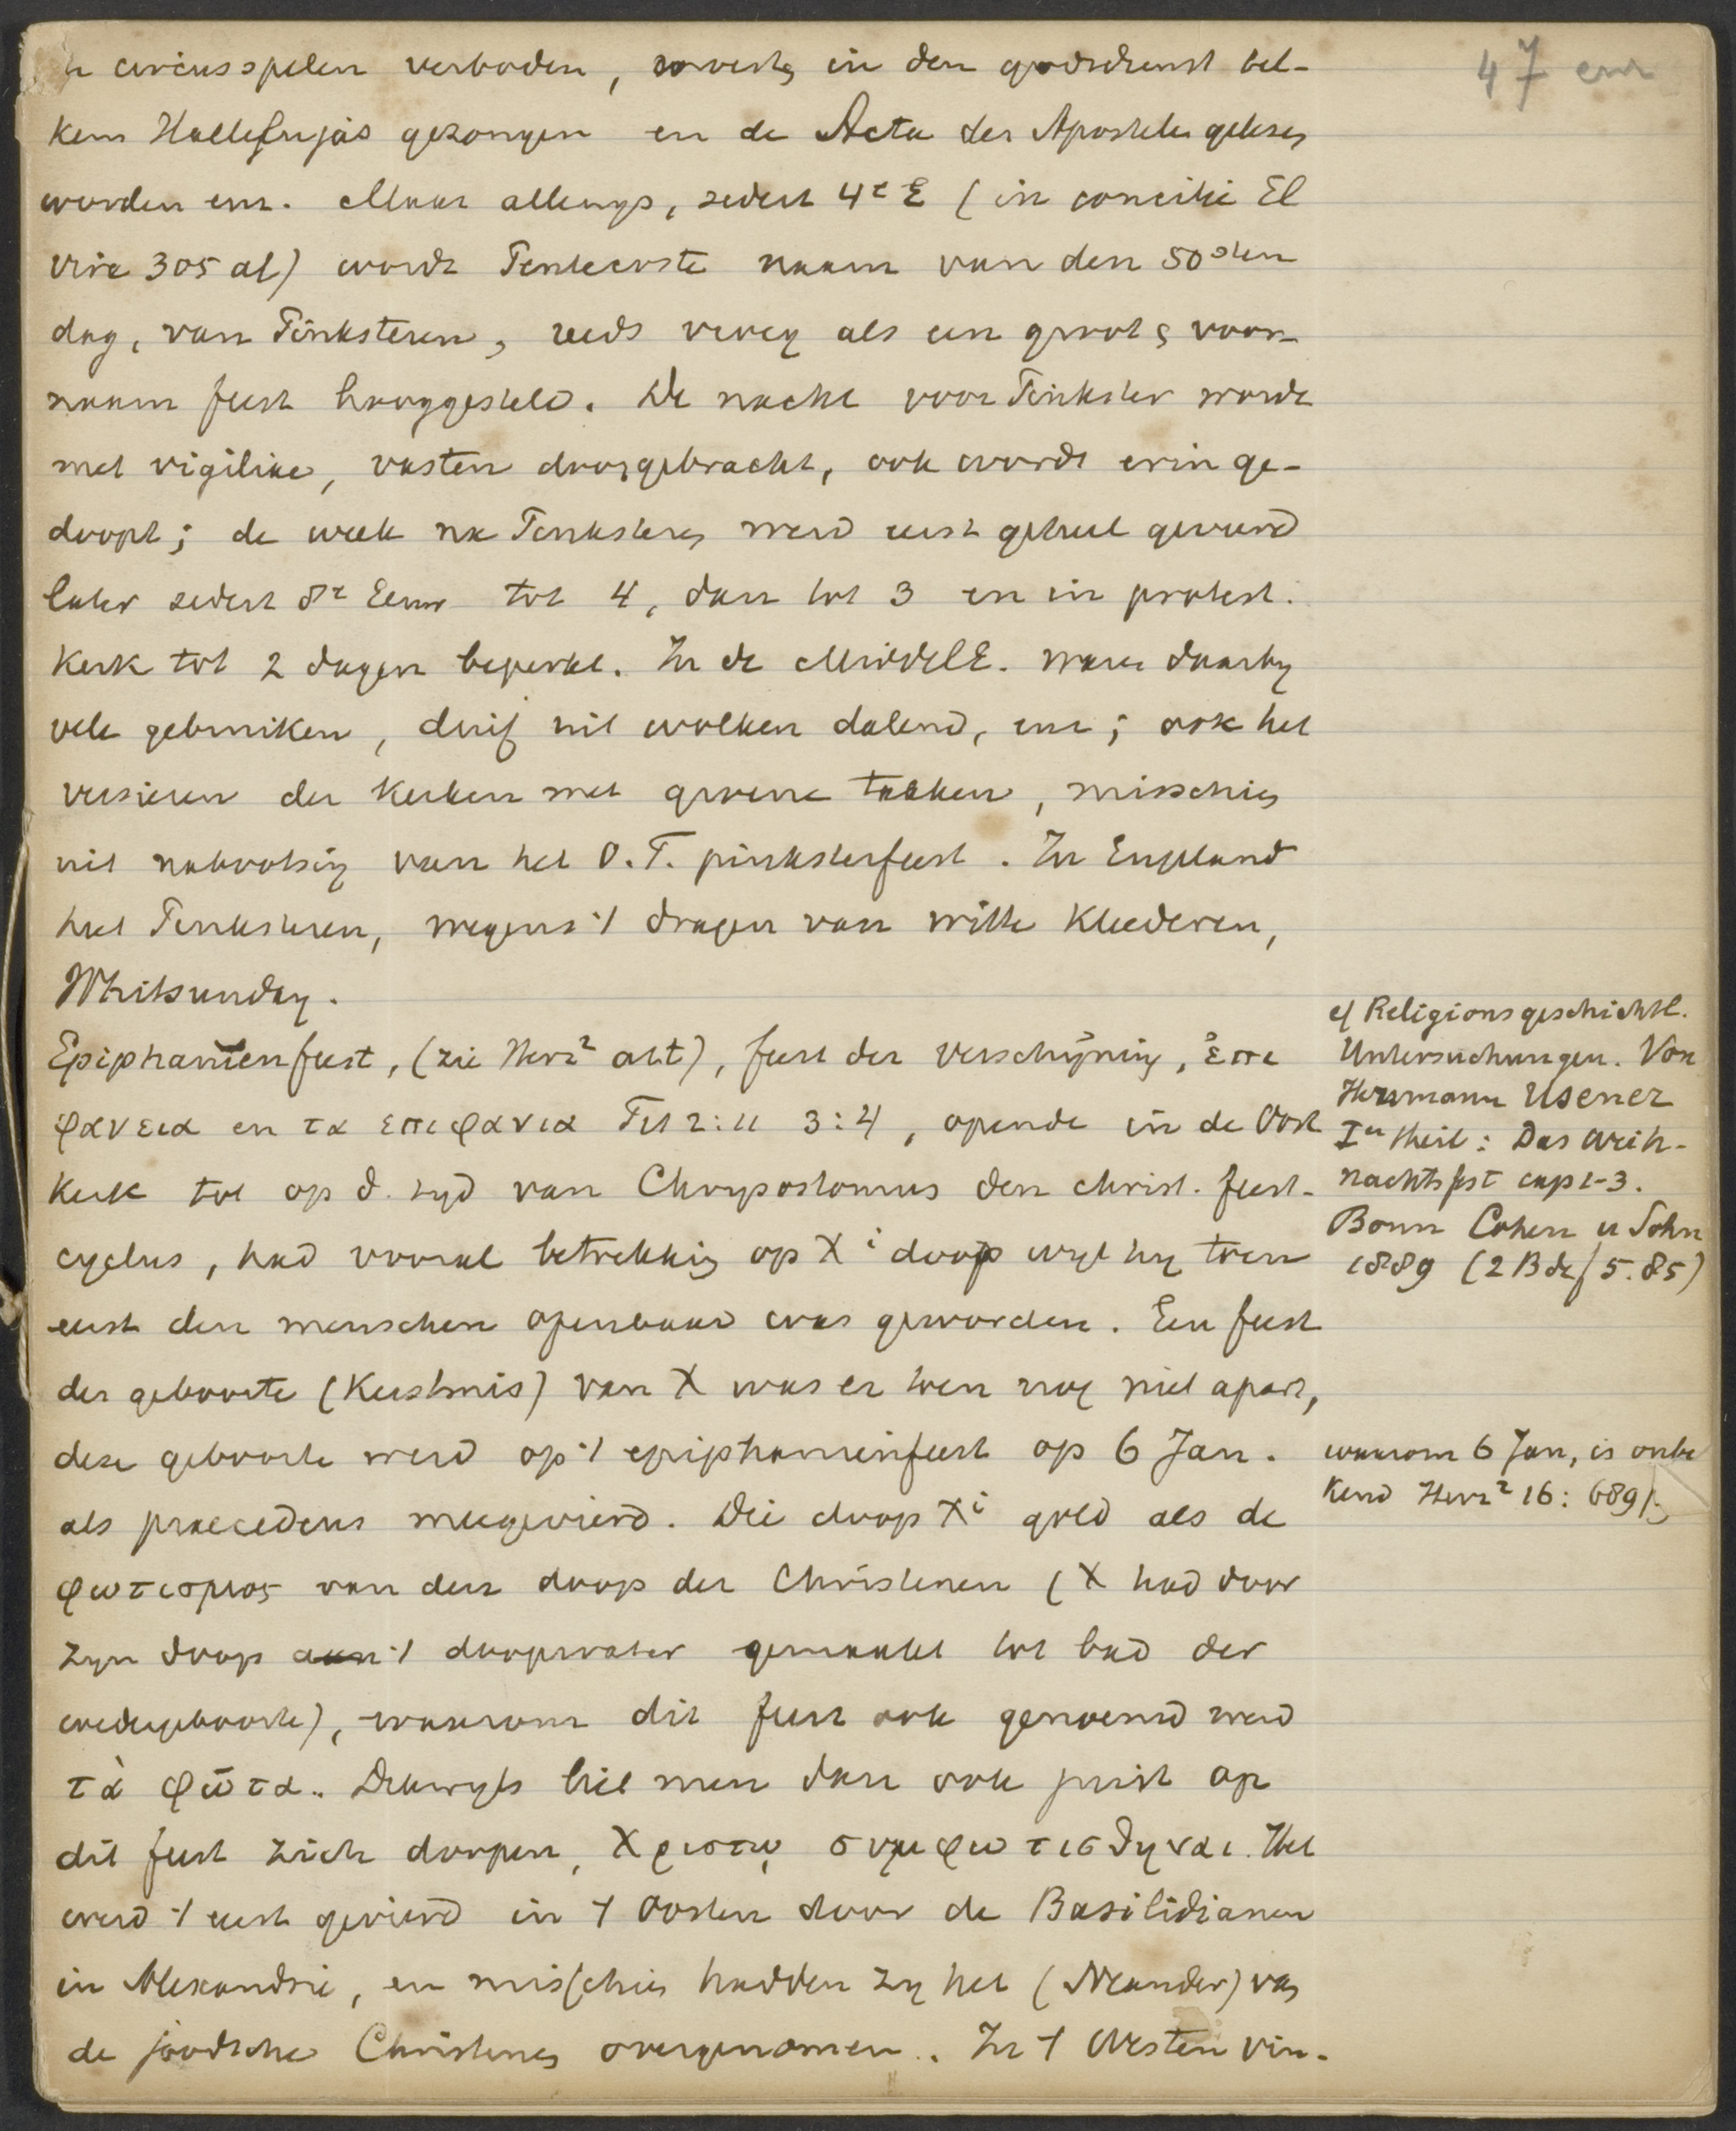 circusspelen verboden, in den godsdienst tel-
kens Hallelujas gezongen en de Acta der Apostelen gelezen
worden enz. Maar allengs, sedert 4e E (in concilie El
vira 305 al) wordt Pentecoste naam van den 50sten
dag, van Pinksteren, reeds vroeg als een groot, voor-
naam feest hooggesteld. De nacht voor Pinkster wordt
met vigiliae, vasten doorgebracht, ook wordt erin ge-
doopt; de week na Pinksteren werd eerst geheel gevierd
later sedert 8e Eeuw tot 4, dan tot 3 en in protest.
Kerk tot 2 dagen beperkt. In de MiddelE. waren daarby
vele gebruiken, duif uit wolken dalend, enz; ook het
versieren der Kerken met groene takken, misschien
uit nabootsing van het O.T. pinksterfeest. In Engeland
heet Pinksteren, wegens 't dragen van witte Kleederen,
Whitsunday.
Epiphaniënfeest, (zie Herz² art), feest der verschijning, ἐπι
φανεια en τα επιφανια Tit 2:11 3:4, opende in de Oost
Kerk tot op d. tyd van Chrysostomus den christ. feest-
cyclus, had vooral betrekking op Xi doop wyl hy toen
eerst den menschen openbaar was geworden. Een feest
der geboorte (Kerstmis) van X was er toen nog niet apart,
deze geboorte werd op 't epiphaniënfeest op 6 Jan.
als praecedens meegevierd. Die doop Xi gold als de
φωτισμος van den doop der Christenen (X had door
zyn doop aan 't doopwater gemaakt tot bad der
wedergeboorte), waarom dit feest ook genoemd werd
τὰ φῶτα. Dikwyls liet men dan ook juist op
dit feest zich doopen, Χριστῳ συμφωτισθηναι. Het
werd 't eerst gevierd in 't Oosten door de Basilidianen
in Alexandrië, en misschien hadden zy het (Neander) van
de joodsche Christenen overgenomen. In 't Westen vin-
47
cf Religionsgeschichtl.
Untersuchungen. Von
Hermann Usener
Ier theil: Das Weih-
nachtsfest cap 1-3.
Bonn Cohen u Sohn
1889 (2 Bde f 5.85)
waarom 6 Jan, is onbe
kend Herz² 16: 689